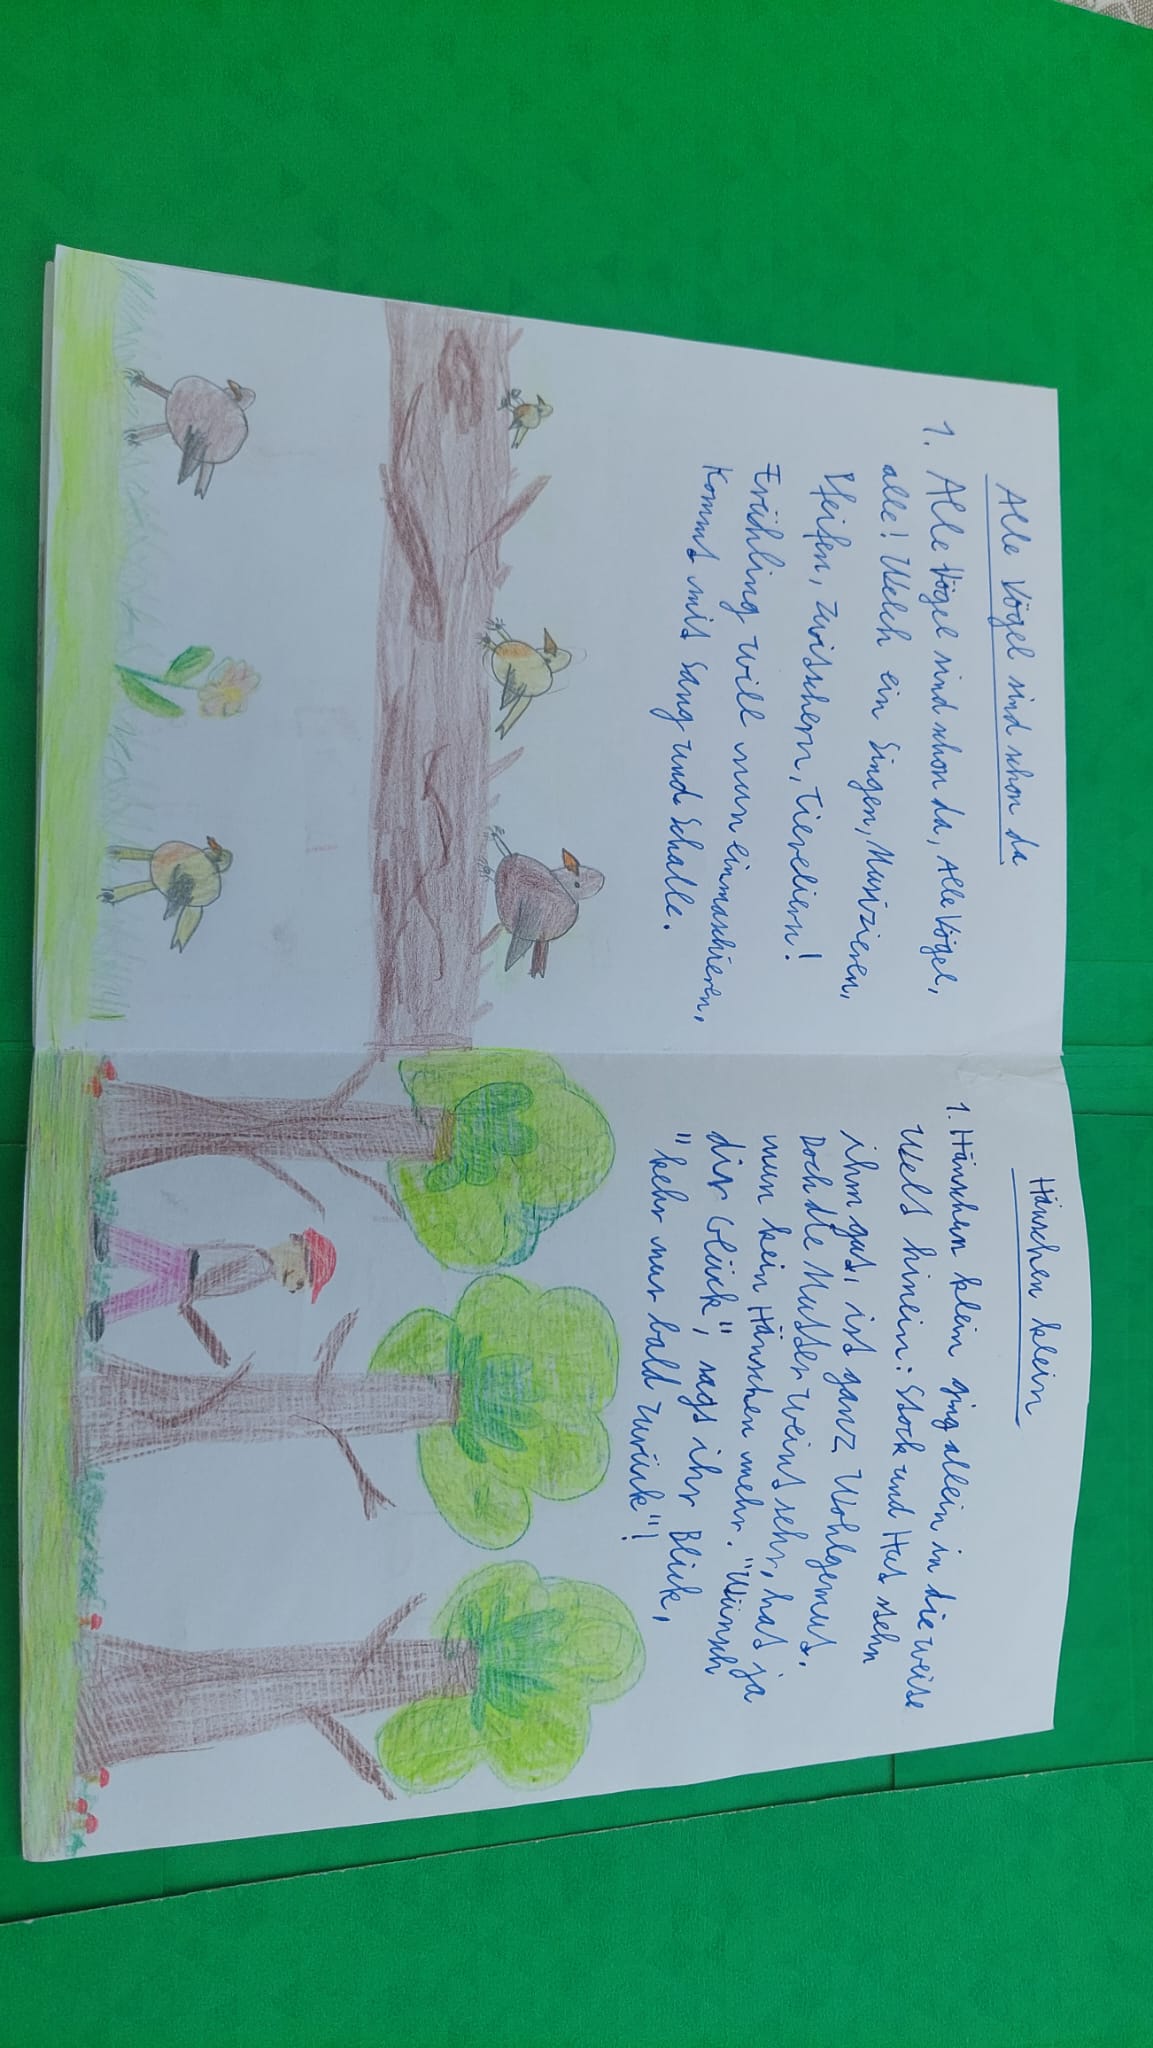 Alle Vögel sind schon da
1. Alle Vögel sind schon da, Alle Vögel,
alle! Welch ein Singen, Musizieren,
Pfeifen, zwitschern, Tierediern!
Frühling will nun einmaschieren,
Kommt mit Sang und Schalle.
Hänschen klein
1. Hänschen klein ging allein in die weise
Welt hinein: Stock und Hut stehn
ihm gut, ist ganz Wohlgemut.
Doch die Mutter weint sehr, hat ja
nun kein Hänschen mehr. "Wünsch
dir Glück", sagt ihr Blick,
"kehr nur bald zurück"!